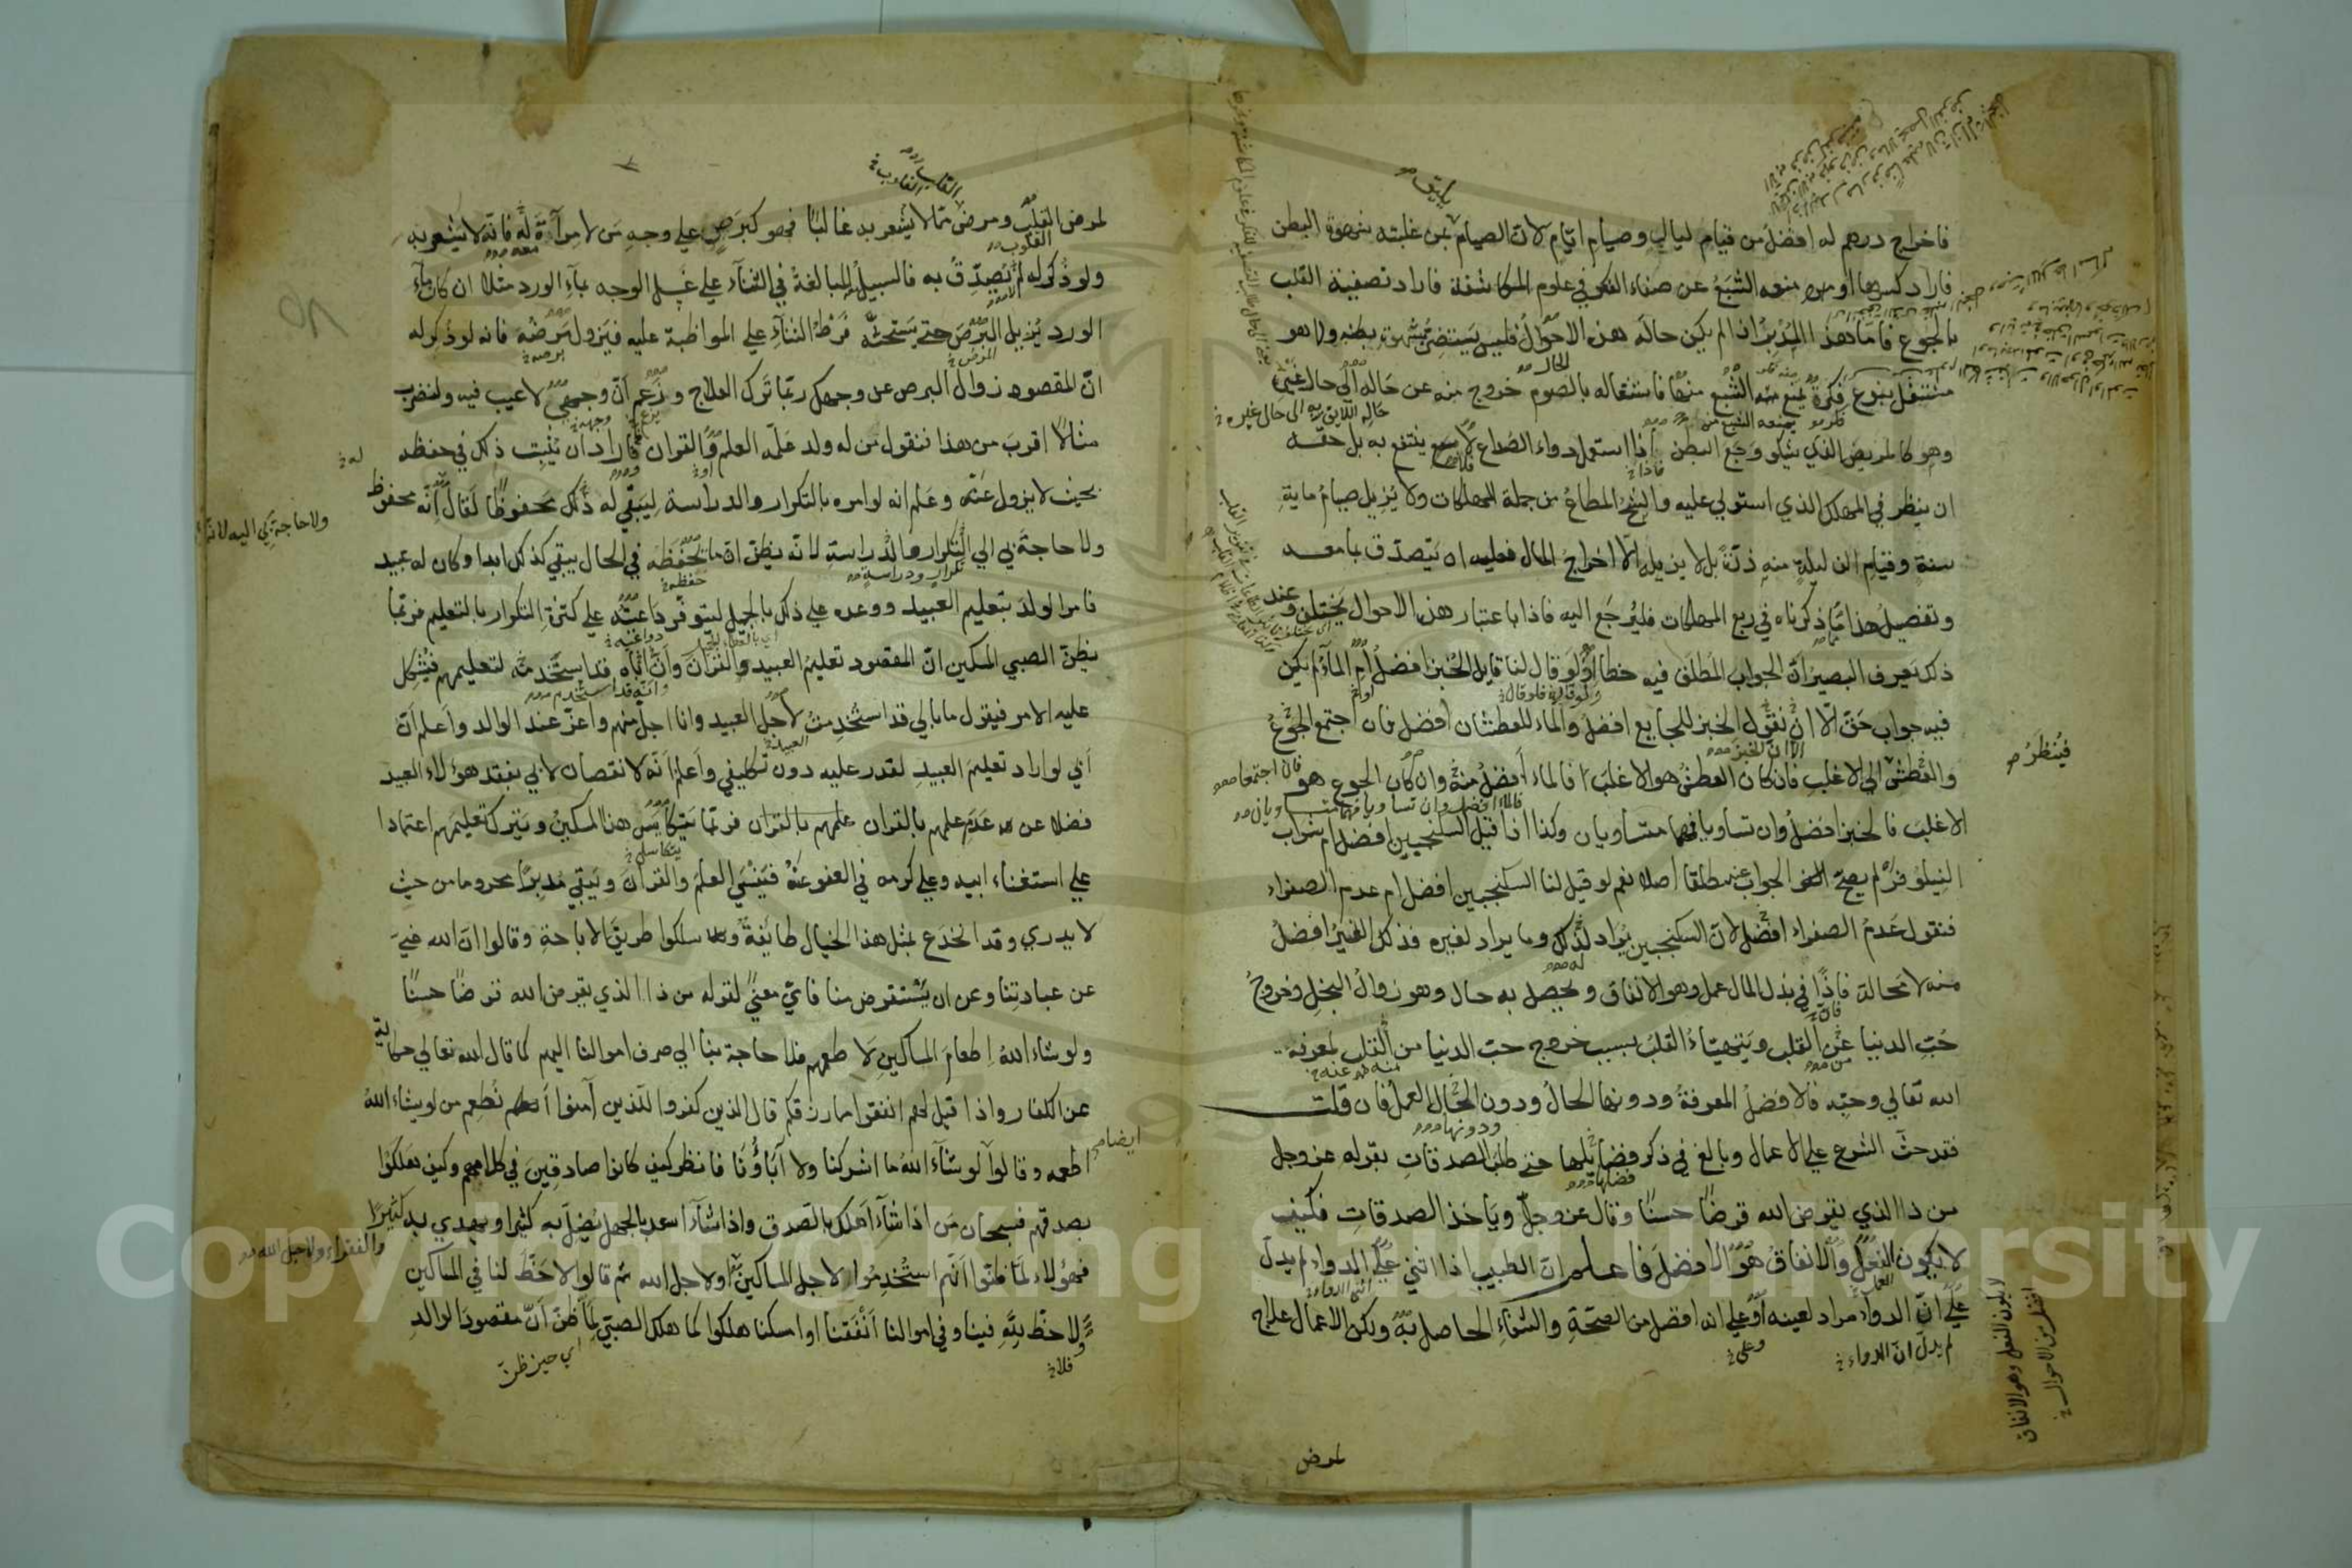 فاخراج درهم له افضل من قيام ليالي وصيام ايام لان الصيام من غلبته شهوة البطن
فاراد كسرها او منعه الشبع عن صفاء الفكر في علوم المكاشفة فاراد تصفية القلب
بالجوع فاما هذا المدبر اذا لم يكن حاله هذه الاحوال فليس يستضر بشهوة بطنه ولا هو
مشتغل بنوع فكرة يمنع منه الشبع منها فاشتغاله بالصوم خروج منه عن حاله الى حال غيره
وهو كالمريض الذي يشكو وجع البطن اذا استعمل دواء الصداع لم ينتفع به بل حقه
ان ينظر في المهلك الذي استولي عليه والشح المطاع من جملة المهلكات ولا يزيل صيام ماية
سنة وقيام الف ليلة منه ذرة بل لا يزيله الا اخراج المال فعليه ان يتصدق بما معه
وتفصيل هذا مما ذكرناه في ربع المهلكات فليرجع اليه فاذا باعتبار هذه الاحوال يختلف وعند
ذلك يعرف البصير ان الجواب المطلق فيه خطا ولو قال لنا قايل الخبز افضل ام الماء لم يكن
فيه جواب حق الا ان نقول الخبز للجايع افضل والماء للعطشان افضل فان اجتمع الجوع
والعطش الي الاغلب فان كان العطش هو الاغلب فالماء افضل منه وان كان الجوع هو
الاغلب فالخبز افضل وان تساويا فهما متساويان وكذا اذا قيل السكنجبين افضل ام شراب
النيلوفر لم يصح الجواب عنه مطلقا اصلا نعم لو قيل لنا السكنجبين افضل ام عدم الصفراء
فنقول عدم الصفراء افضل لان السكنجبين يراد لذلك وما يراد لغيره فذلك الغير افضل
منه لا محالة فاذا في بذل المال عمل وهو الانفاق ويحصل به حال وهو زوال البخل وخروج
حب الدنيا عن القلب ويتهياء القلب بسبب خروج حب الدنيا من القلب لمعرفة
الله تعالي وحبه فالافضل المعرفة ودونها الحال ودون الحال العمل فان قلت
فقد حث الشرع علي الاعمال وبالغ في ذكر فضايلها حتي طلب الصدقات بقوله عز وجل
من ذا الذي يقرض الله قرضا حسنا وقال عز وجل وياخذ الصدقات فكيف
لا يكون الفعل والانفاق هو الافضل فاعلم ان الطبيب اذا اثني علي الدواء لم يدل
علي ان الدواء مراد لعينه او علي انه افضل من الصحة والشفاء الحاصل به ولكن الاعمال علاج
لم يدل ان الدواء
وعلي
يليق
فينظر
لا يكون الفعل وهو الانفاق
افضل من الاحوال
لمرض
القلب
القلوب
لمرض القلب ومرض مما لا يشعر به غالبا فهو كبرص علي وجه من لا مرآة له فانه لا يشعر به
ولو ذكر له لم يصدق به فالسبيل المبالغة في الثناء علي غسل الوجه بماء الورد مثلا ان كان ماء
الورد يزيل البرص حتي يستحثه فرط الثناء علي المواظبة عليه فيزول مرضه فانه لو ذكر له
ان المقصود زوال البرص عن وجهك ربما ترك العلاج وزعم ان وجهي لا عيب فيه ولنضرب
مثالا اقرب من هذا فنقول من له ولد علمه العلم والقران فاراد ان يثبت ذلك في حفظه
بحيث لا يزول عنه وعلم انه لو امره بالتكرار والدراسة ليبقي له ذلك محفوظا لقال انه محفوظ
ولا حاجة بي الي التكرار والدراسة لانه يظن ان ما يحفظه في الحال يبقي كذلك ابدا وكان له عبيد
فامر الولد بتعليم العبيد ووعده علي ذلك بالجميل ليتوفر داعيته علي كثرة التكرار بالتعليم فربما
يظن الصبي المسكين ان المقصود تعليم العبيد والقران وان اباه قد استخدمه لتعليمهم فيشكل
عليه الامر فيقول ما بالي قد استخدمت لاجل العبيد وانا اجل منهم واعز عند الوالد واعلم ان
ابي لو اراد تعليم العبيد لقدر عليه دون تكليفي واعلم انه لا نقصان لابي بفقد هؤلاء العبيد
فضلا عن عدم علمهم بالقران فربما يتكاسل هذا المسكين ويترك تعليمهم اعتمادا
علي استغناء ابيه وعلي كرمه في العفو عنه فينسي العلم والقران ويبقي مدبرا محروما من حيث
لا يدري وقد انخدع بمثل هذا الخيال طائفة وسلكوا طريق الاباحة وقالوا ان الله غني
عن عبادتنا وعن ان يستقرض منا فاي معني لقوله من ذا الذي يقرض الله قرضا حسنا
ولو شاء الله اطعام المساكين لاطعمهم فلا حاجة بنا الي صرف اموالنا اليهم كما قال الله تعالي حكاية
عن الكفار واذا قيل لهم انفقوا مما رزقكم قال الذين كفروا للذين آمنوا انطعم من لو يشاء الله
اطعمه وقالوا لو شاء الله ما اشركنا ولا آباؤنا فانظر كيف كانوا صادقين في كلامهم وكيف هلكوا
بصدقهم فسبحان من اذا شاء اهلك بالصدق واذا شاء اسعد بالجهل يضل به كثيرا ويهدي به كثيرا
فهؤلاء لما ظنوا انهم استخدموا لاجل المساكين او لاجل الله ثم قالوا لا حظ لنا في المساكين
ولا حظ لله فينا وفي اموالنا انفقنا او امسكنا هلكوا كما هلك الصبي لما ظن ان مقصود الوالد
فلا
اي حين ظن
ولا حاجة بي اليه
ايضا
والفقراء ولاجل الله
Copyright © King Saud University